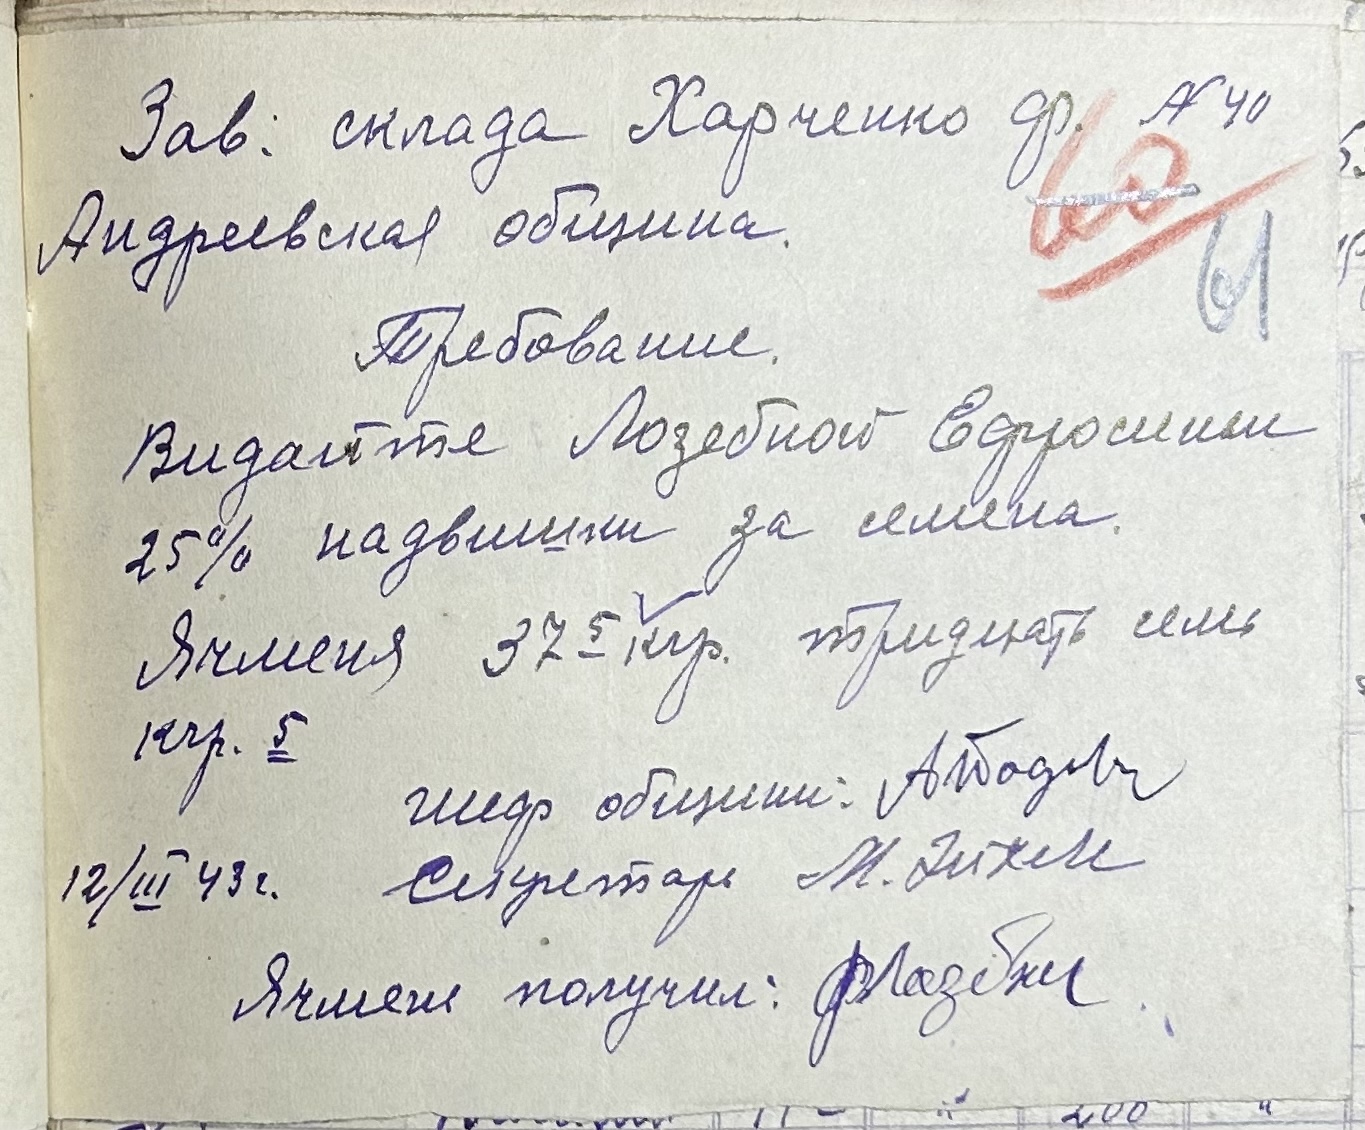 Зав: склада Харченко др. № 40
60
61
Андреевская община.
Требование.
Видайте Лозебной Ефросинии
25% надвишки за семена.
Ячменя 37 5 кгр. тридцать семь
кгр. 5
шеф общины:
12/III 43 г. Секретарь М.
Ячмень получил:
200